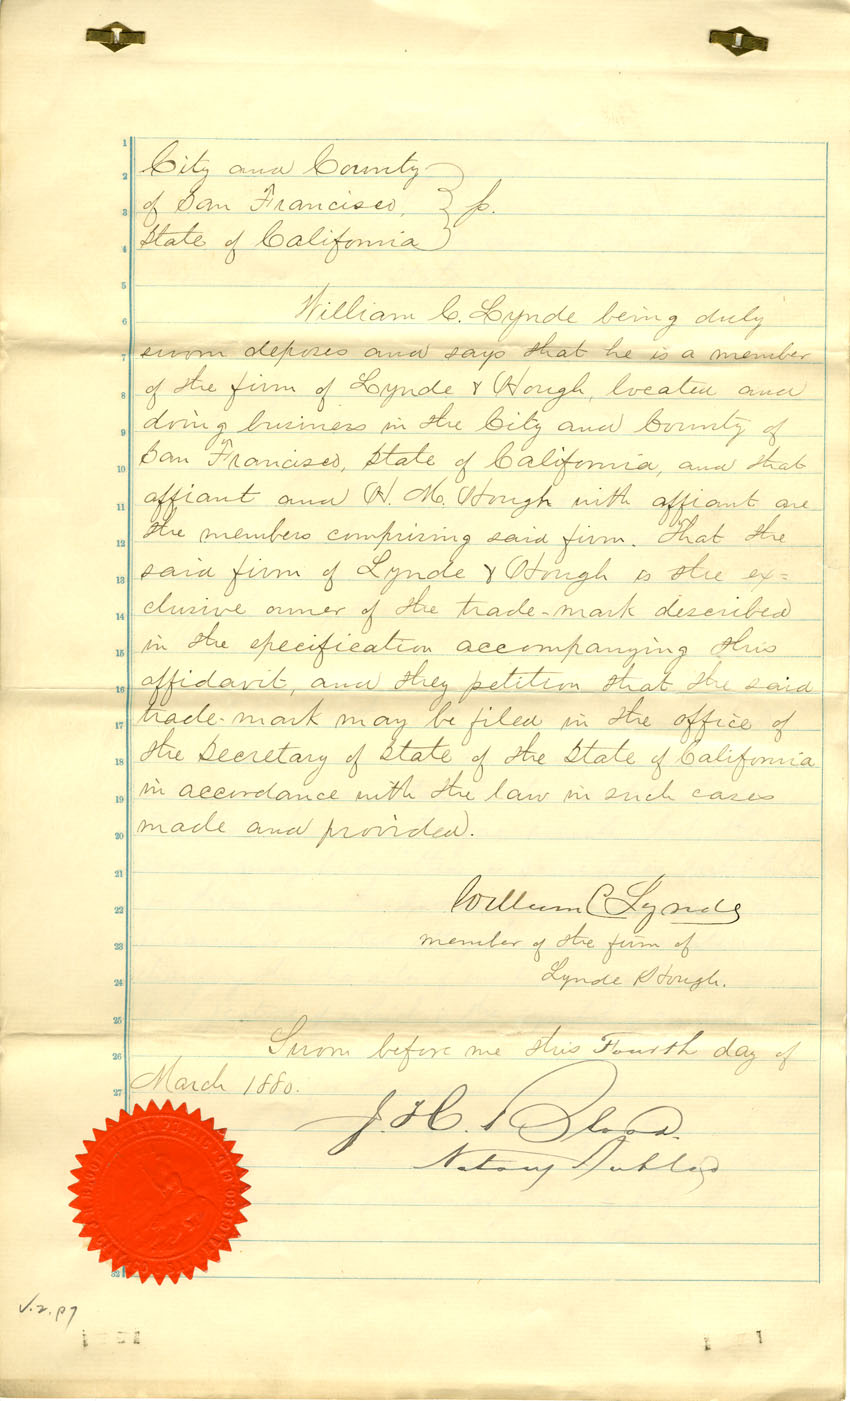 City and County
of San Francisco, } ss.
State of California
William C. Lynde being duly
sworn deposes and says that he is a member
of the firm of Lynde & Hough, located and
doing business in the City and County of
San Francisco, State of California, and that
affiant and H. M. Hough with affiant are
the members comprising said firm. That the
said firm of Lynde & Hough is the ex=
clusive owner of the trade-mark described
in the specification accompanying this
affidavit, and they petition that the said
trade-mark may be filed in the office of
the Secretary of State of the State of California
in accordance with the law in such cases
made and provided.
William C Lynde
member of the firm of
Lynde & Hough.
Sworn before me this Fourth day of
March 1880.
J. H. Blood.
Notary Public
V.2.P7